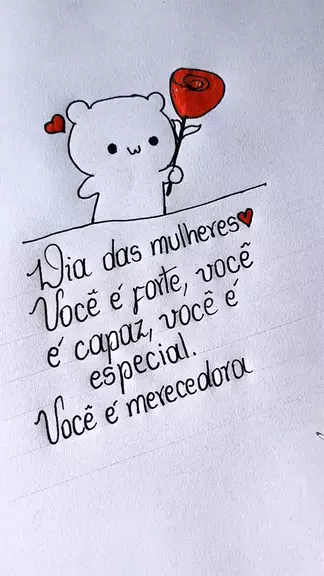 Dia das mulheres
Você é forte, você
é capaz, você é
especial.
Você é merecedora